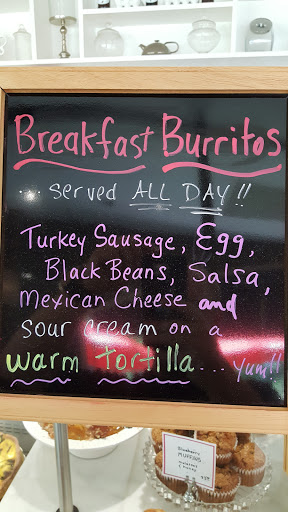 Breakfast Burritos
... served ALL DAY!!
Turkey Sausage, Egg,
Black Beans, Salsa,
Mexican Cheese and
sour cream on a
warm tortilla... Yum!!
Blueberry
MUFFINS